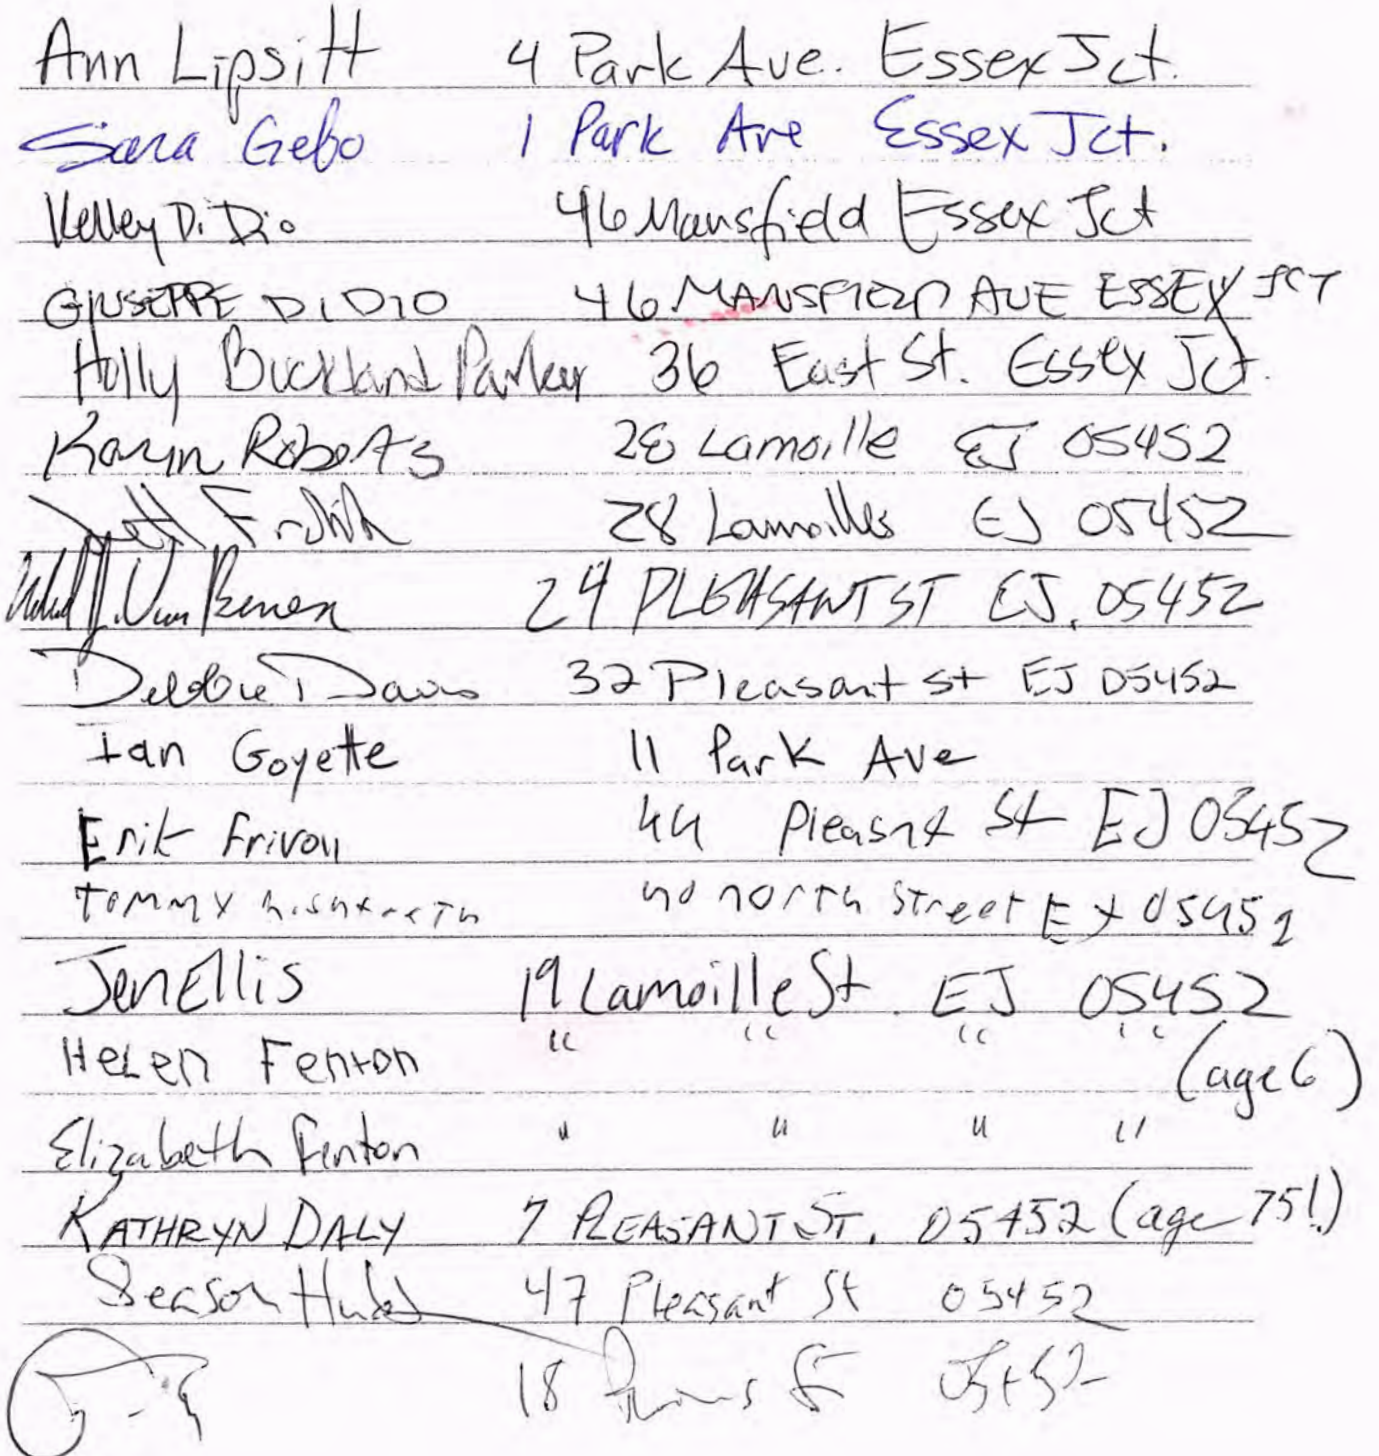 Ann Lipsitt 4 Park Ave. Essex Jct.
Sara Gebo 1 Park Ave Essex Jct.
Kelley Di Dio 46 Mansfield Essex Jct
GIUSEPPE DIDIO 46 MANSFIELD AVE ESSEX JCT
Holly Buckland Parker 36 East St. Essex Jct.
Karyn Roberts 28 Lamoille EJ 05452
28 Lamoille EJ 05452
24 PLEASANT ST EJ. 05452
Debbie Davis 32 Pleasant St EJ 05452
Ian Goyette 11 Park Ave
Erik 44 Pleasnt St EJ 05452
Tommy 40 north Street 05452
Jen Ellis 19 Lamoille St. EJ 05452
HeLen Fenton " " " " (age 6)
Elizabeth Fenton " " " "
KATHRYN DALY 7 PLEASANT ST. 05452 (age 75!)
Season 47 Pleasant St 05452
18 St 05452